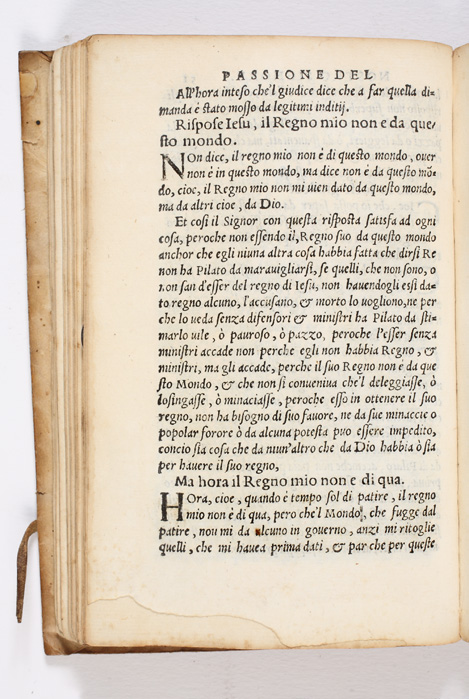 PASSIONE DEL
All'hora inteso che'l giudice dice che a far quella di-
manda è stato mosso da legitimi inditij.
Rispose Iesu, il Regno mio non e da que-
sto mondo.
NOn dice, il regno mio non è di questo mondo, over
non è in questo mondo, ma dice non è da questo mõ-
do, cioe, il Regno mio non mi vien dato da questo mondo,
ma da altri cioe, da Dio.
Et cosi il Signor con questa risposta satisfa ad ogni
cosa, peroche non essendo il, Regno suo da questo mondo
anchor che egli niuna altra cosa habbia fatta che dirsi Re
non ha Pilato da maravigliarsi, se quelli, che non sono, o
non san d'esser del regno di Iesu, non havendogli essi da-
to regno alcuno, l'accusano, & morto lo vogliono, ne per
che lo veda senza difensori & ministri ha Pilato da sti-
marlo vile, ò pauroso, ò pazzo, peroche l'esser senza
ministri accade non perche egli non habbia Regno, &
ministri, ma gli accade, perche il suo Regno non è da que
sto Mondo, & che non si conveniva che'l deleggiasse, ò
losingasse, ò minaciasse, peroche esso in ottenere il suo
regno, non ha bisogno di suo favore, ne da sue minaccie o
popolar forore ò da alcuna potesta puo essere impedito,
concio sia cosa che da niun'altro che da Dio habbia ò sia
per havere il suo regno,
Ma hora il Regno mio non e di qua.
HOra, cioe, quando è tempo sol di patire, il regno
mio non è di qua, pero che'l Mondo, che fugge dal
patire, non mi da alcuno in governo, anzi mi ritoglie
quelli, che mi havea prima dati, & par che per queste